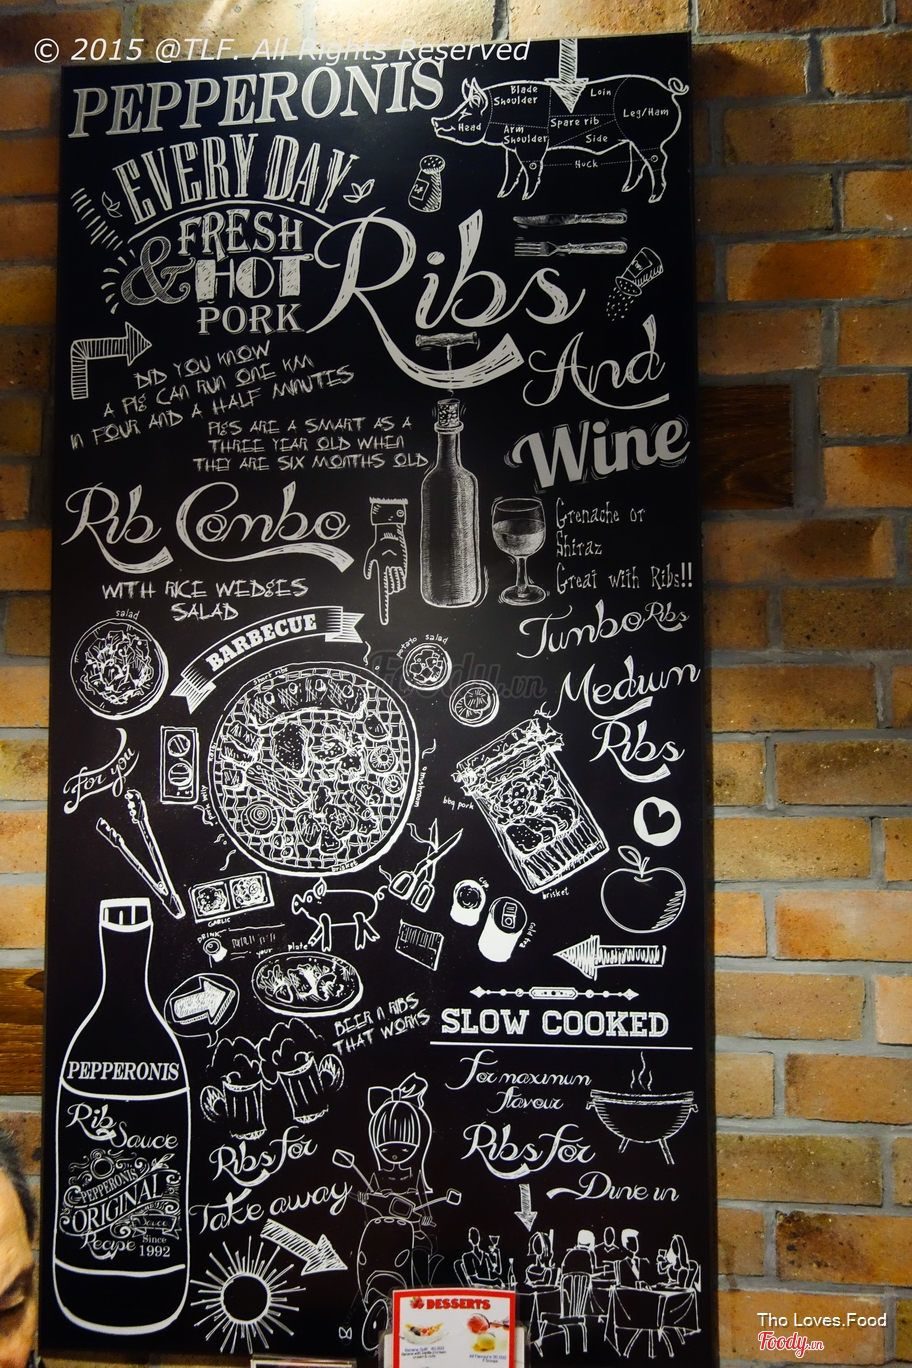 © 2015 @TLF. All Rights Reserved
PEPPERONIS
Blade
Shoulder
Loin
Leg/Ham
Head
Arm
Shoulder
Spare rib
Side
Huck
EVERY DAY
FRESH
& HOT
PORK
Ribs
And
Wine
DID YOU KNOW
A PIG CAN RUN ONE KM
IN FOUR AND A HALF MINUTES
PIGS ARE A SMART AS A
THREE YEAR OLD WHEN
THEY ARE SIX MONTHS OLD
Rib Combo
WITH RICE WEDGES
SALAD
Grenache or
Shiraz
Great with Ribs!!
Jumbo Ribs
Medium
Ribs
salad
BARBECUE
potato salad
short ribs
Foody.vn
For you
bbq pork
brisket
GARLIC
DRINK
your
plate
BEER N RIBS
THAT WORKS
SLOW COOKED
For maximum
flavour
Ribs For
Dune in
PEPPERONIS
Rib Sauce
PEPPERONIS
ORIGINAL
Sauce
Recipe
Since
1992
Ribs for
Take away
DESSERTS
Tho Loves.Food
Foody.vn